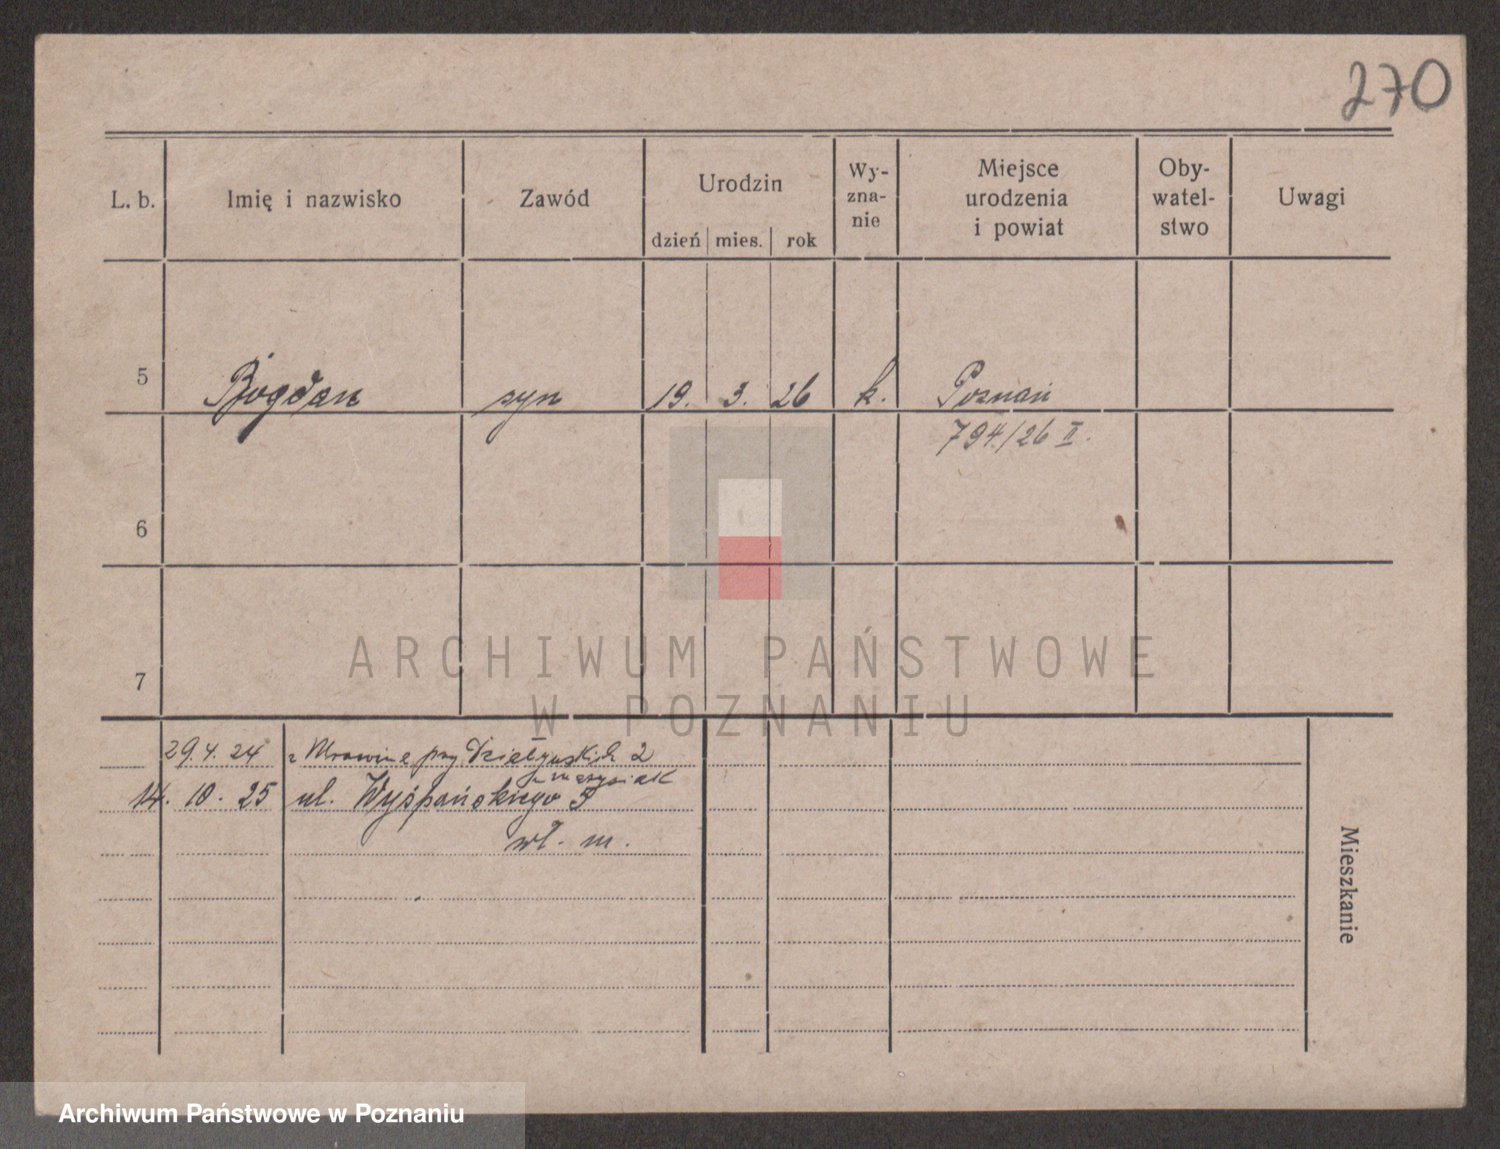 270
L. b. Imię i nazwisko Zawód Urodzin Wy-zna-nie Miejsce urodzenia i powiat Oby-watel-stwo Uwagi
dzień mies. rok
5 Bogdan syn 19. 3. 26 k. Poznań
794/26 II.
6
7
ARCHIWUM PAŃSTWOWE
W POZNANIU
29. 4. 24 przy 2
14. 10. 25 ul. Wyśpańskiego 5
wł. m.
Mieszkanie
Archiwum Państwowe w Poznaniu